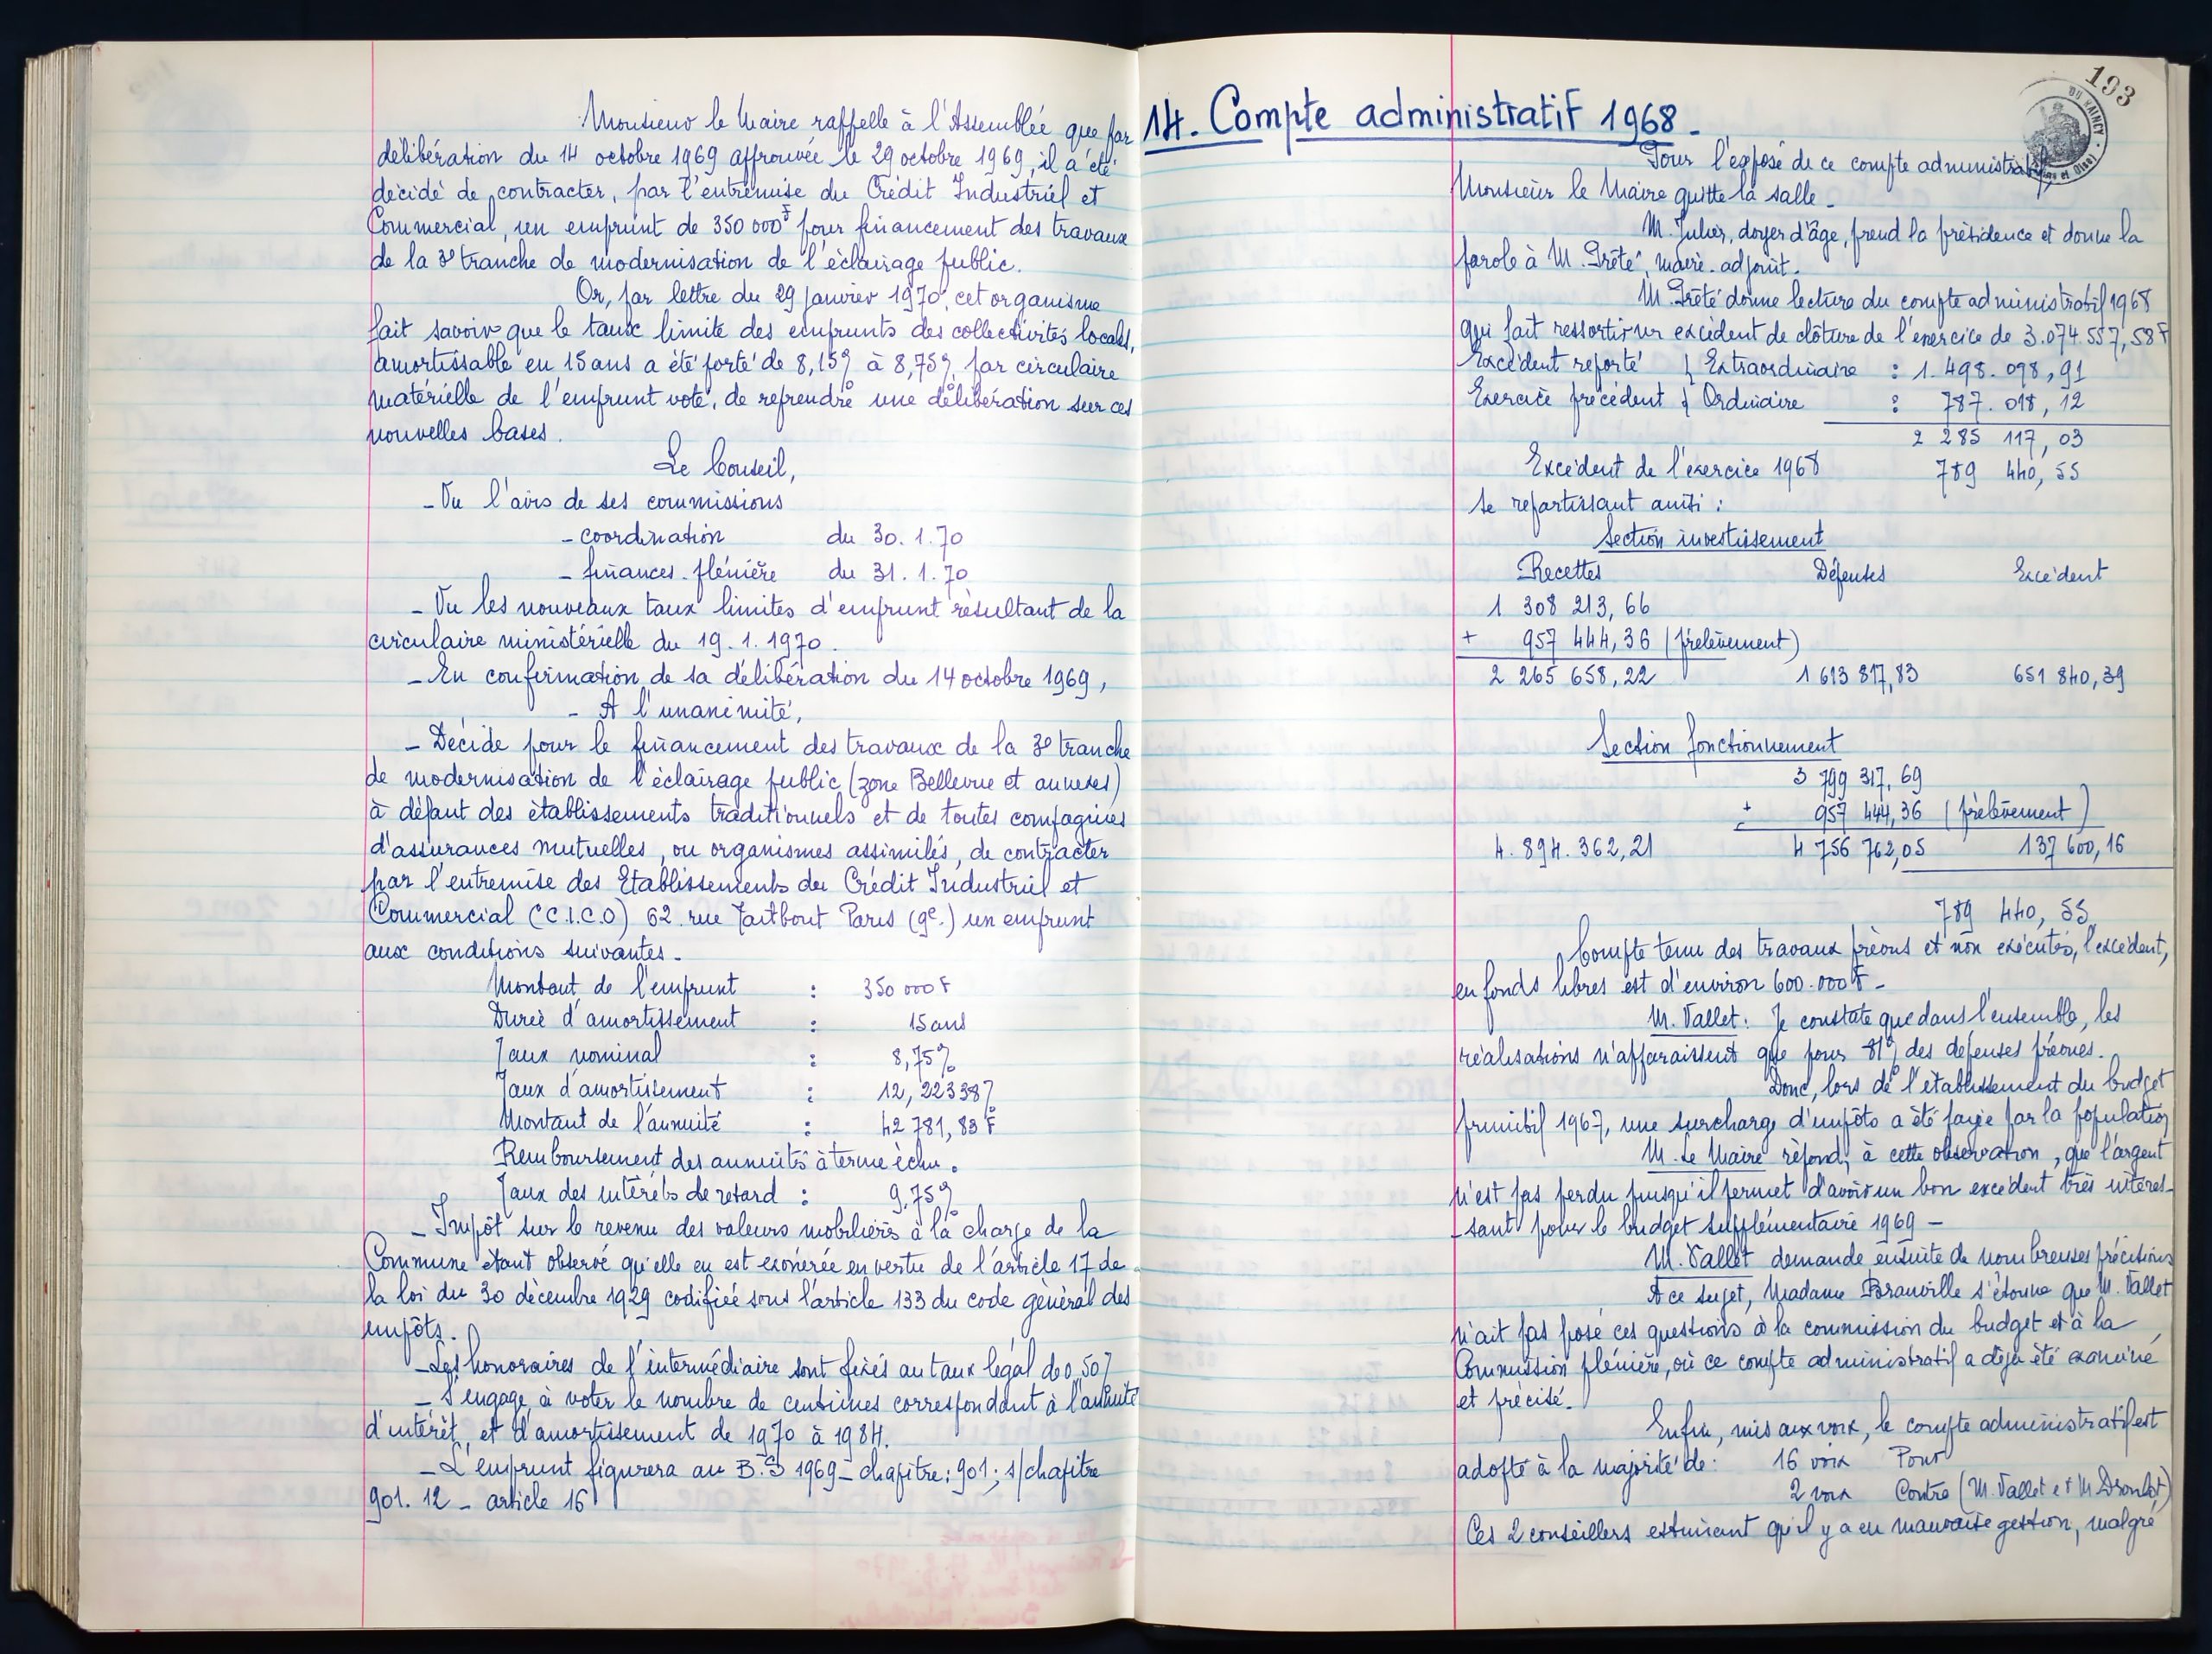 Monsieur le Maire rappelle à l'Assemblée que par
délibération du 14 octobre 1969 approuvée le 29 octobre 1969, il a été
décidé de contracter, par l'entremise du Crédit Industriel et
Commercial, un emprunt de 350 000 F pour financement des travaux
de la 3e tranche de modernisation de l'éclairage public.
Or, par lettre du 29 janvier 1970, cet organisme
fait savoir que le taux limite des emprunts des collectivités locales,
amortissable en 15 ans a été porté de 8,15% à 8,75%, par circulaire
matérielle de l'emprunt voté, de reprendre une délibération sur ces
nouvelles bases.
Le Conseil,
- Vu l'avis de ses commissions
- coordination du 30.1.70
- finances-plénière du 31.1.70
- Vu les nouveaux taux limites d'emprunt résultant de la
circulaire ministérielle du 19.1.1970.
- En confirmation de sa délibération du 14 octobre 1969,
- A l'unanimité,
- Décide pour le financement des travaux de la 3e tranche
de modernisation de l'éclairage public (zone Bellevue et annexes)
à défaut des établissements traditionnels et de toutes compagnies
d'assurances mutuelles, ou organismes assimilés, de contracter
par l'entremise des Etablissements du Crédit Industriel et
Commercial (C.I.C.O) 62 rue Taitbout Paris (9e.) un emprunt
aux conditions suivantes.
Montant de l'emprunt : 350 000 F
Durée d'amortissement : 15 ans
Taux nominal : 8,75%
Taux d'amortissement : 12,22338%
Montant de l'annuité : 42 781,83 F
Remboursement des annuités à terme échu.
Taux des intérêts de retard : 9,75%
- Impôt sur le revenu des valeurs mobilières à la charge de la
Commune étant observé qu'elle en est exonérée en vertu de l'article 17 de
la loi du 30 décembre 1929 codifiée sous l'article 133 du code général des
impôts.
- Les honoraires de l'intermédiaire sont fixés au taux légal de 0,50%
- S'engage à voter le nombre de centimes correspondant à l'annuité
d'intérêt et d'amortissement de 1970 à 1984.
- L'emprunt figurera au B.S 1969 - chapitre : 901 ; s/chapitre
901.12 - article 16
193
DU RAINCY
Seine et Oise
14. Compte administratif 1968.
Pour l'exposé de ce compte administratif,
Monsieur le Maire quitte la salle.
M. Julier, doyen d'âge, prend la présidence et donne la
parole à M. Prêté, maire-adjoint.
M. Prêté donne lecture du compte administratif 1968
qui fait ressortir un excédent de clôture de l'exercice de 3.074.557,58 F
Excédent reporté { Extraordinaire : 1.498.098,91
Exercice précédent { Ordinaire : 787.018,12
2 285 117,03
Excédent de l'exercice 1968 789 440,55
se répartissant ainsi :
Section investissement
Recettes Dépenses Excédent
1 308 213,66
+ 957 444,36 (prélèvement)
2 265 658,22 1 613 817,83 651 840,39
Section fonctionnement
3 799 317,69
+ 957 444,36 (prélèvement)
4.894.362,21 4 756 762,05 137 600,16
789 440,55
Compte tenu des travaux prévus et non exécutés, l'excédent,
en fonds libres est d'environ 600.000 F -
M. Vallet : Je constate que dans l'ensemble, les
réalisations n'apparaissent que pour 81% des dépenses prévues.
Donc, lors de l'établissement du budget
primitif 1967, une surcharge d'impôts a été payée par la population
M. Le Maire répond, à cette observation, que l'argent
n'est pas perdu puisqu'il permet d'avoir un bon excédent très intéres-
-sant pour le budget supplémentaire 1969 -
M. Vallet demande ensuite de nombreuses précisions
A ce sujet, Madame Branville s'étonne que M. Vallet
n'ait pas posé ces questions à la commission du budget et à la
Commission plénière, où ce compte administratif a déjà été examiné
et précisé.
Enfin, mis aux voix, le compte administratif est
adopté à la majorité de : 16 voix Pour
2 voix Contre (M. Vallet et M.
Ces 2 conseillers estimant qu'il y a eu mauvaise gestion, malgré